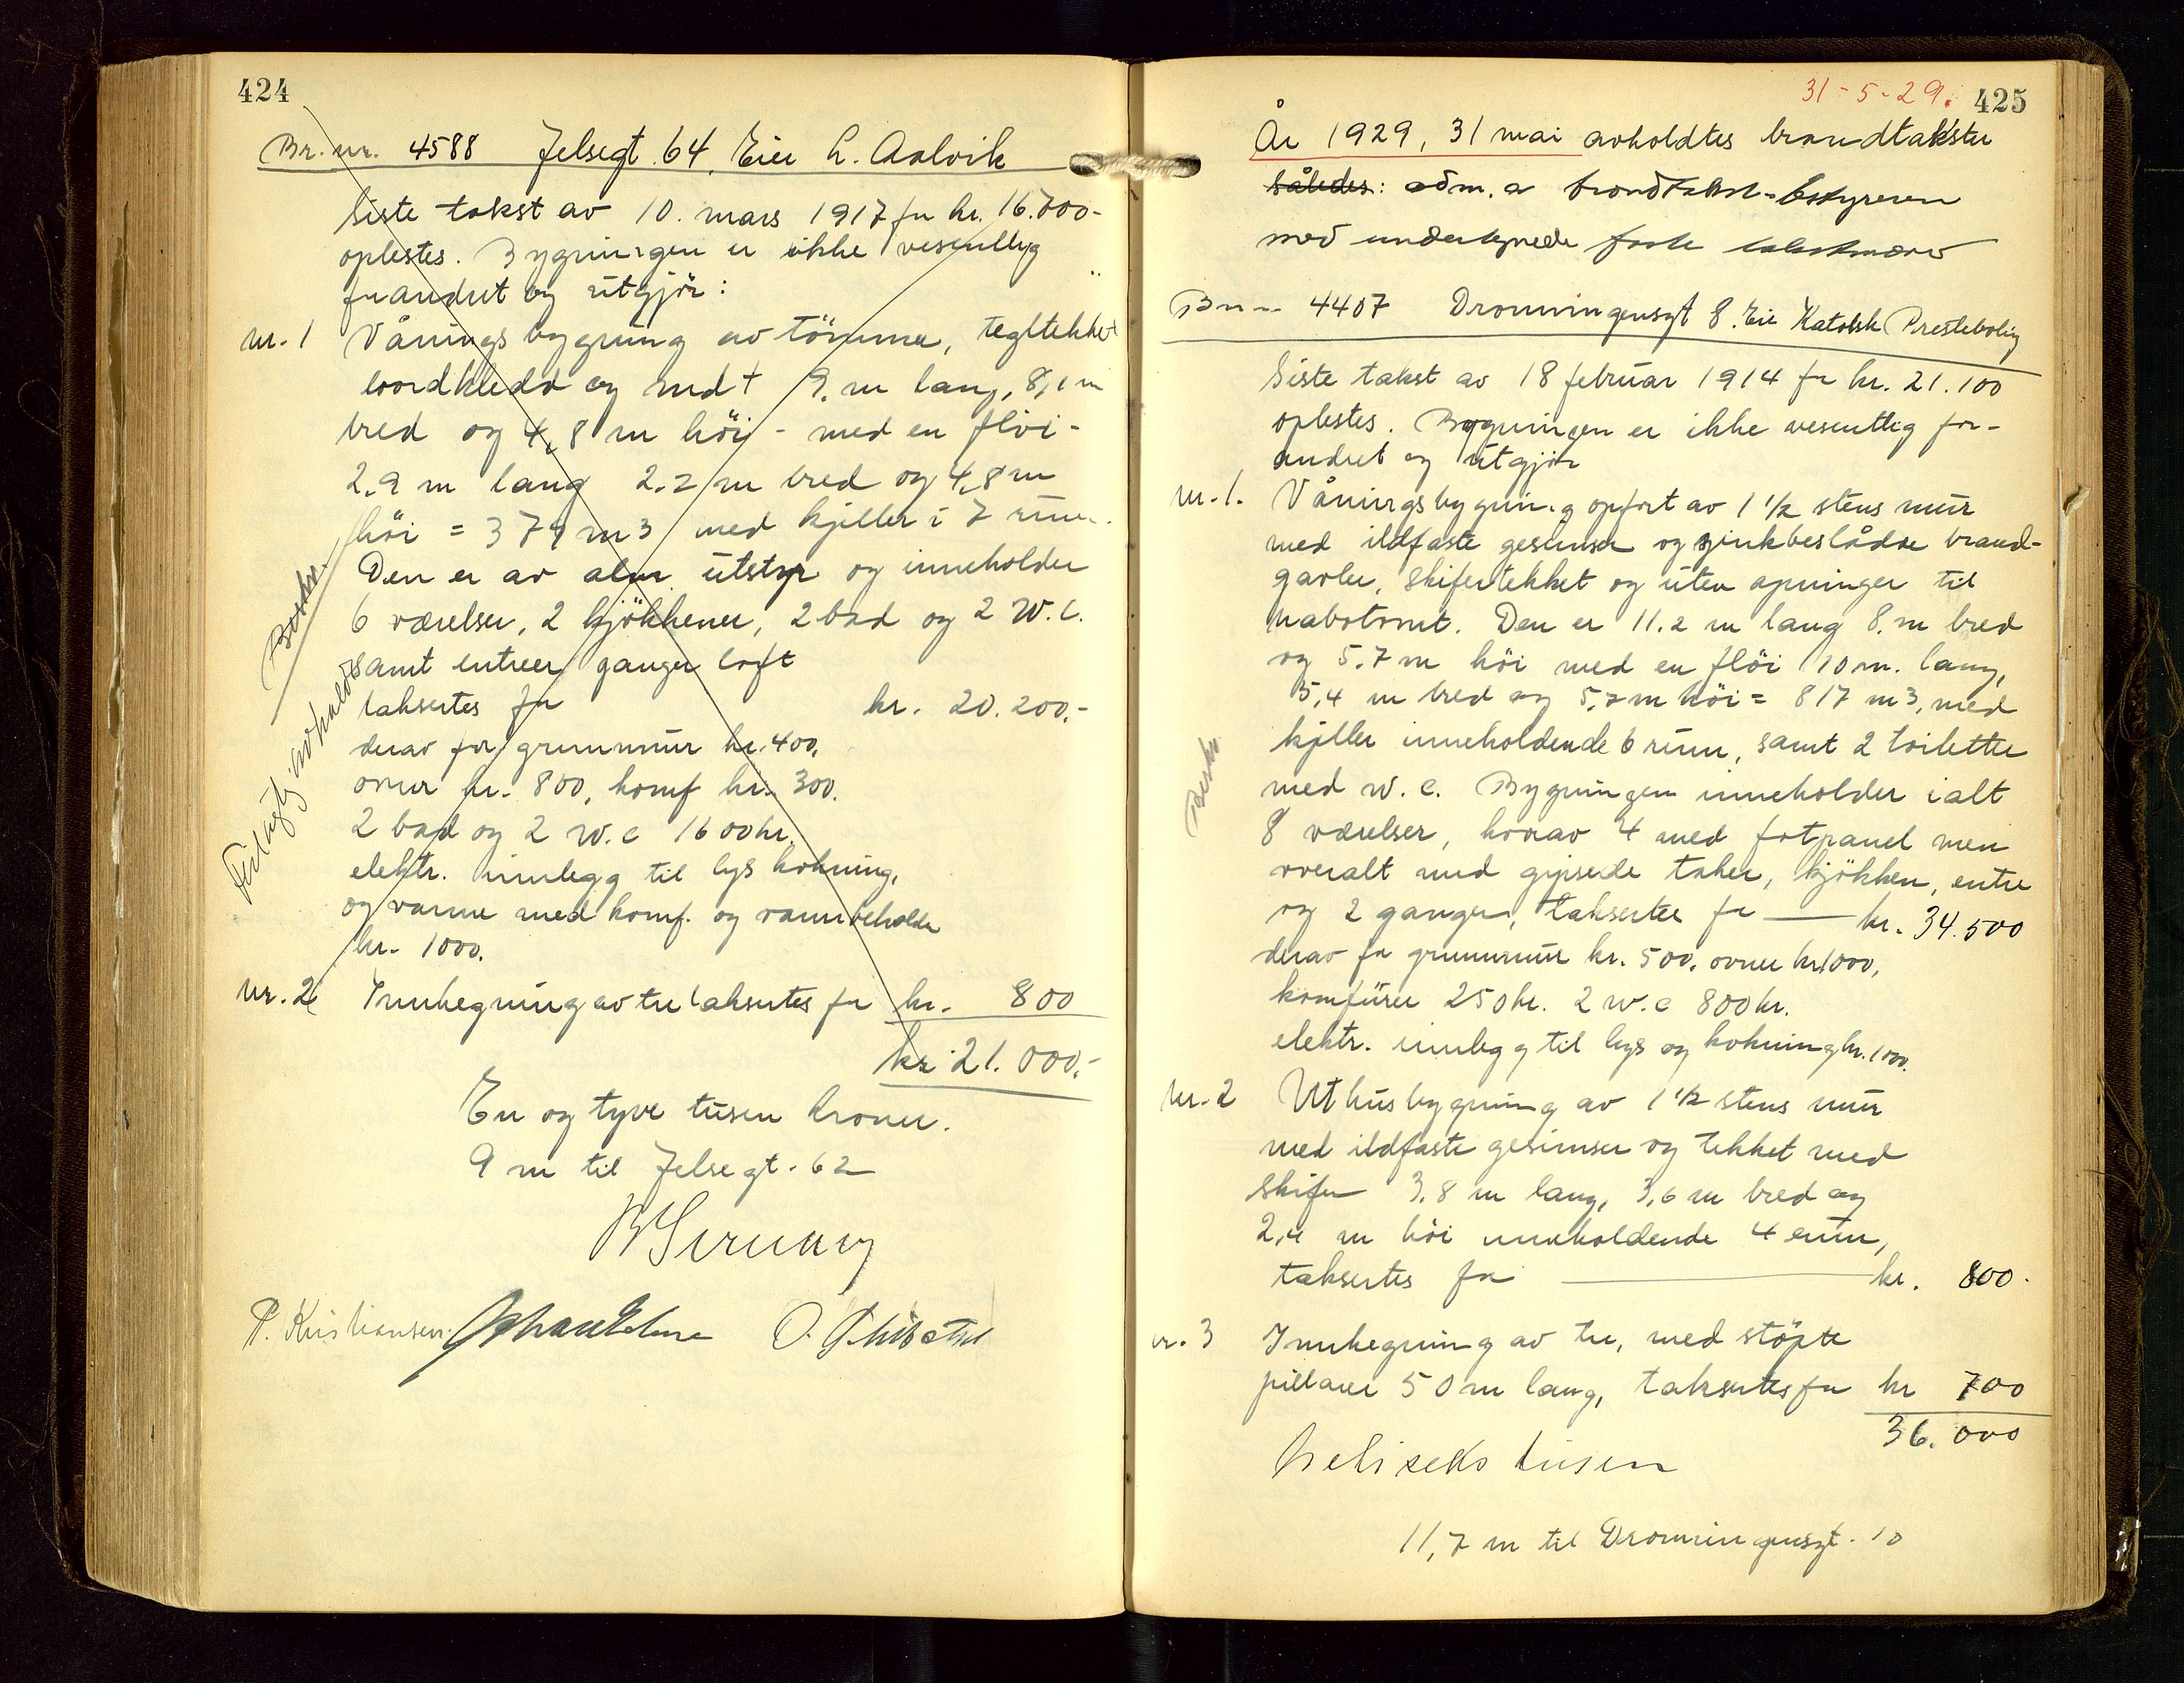 424
Br. nr. 4588 Jelsegt. 64. Eier L. Aalvik
Siste takst av 10. mars 1917 for kr. 16.700-
oplestes. Bygningen er ikke vesentlig
forandret og utgjør:
nr. 1 Våningsbygning av tömmer, tegltekket
bordkledd og med + 9. m lang, 8,1 m
bred og 4,8 m höi - med en flöi -
2.9 m lang 2.2 m bred og 4,8 m
höi = 374 m3 med kjeller i 7 rum.
Den er av alm. utstyr og inneholder
6 værelser, 2 kjökkener, 2 bad og 2 W.C.
samt entreer ganger loft
taksertes for kr. 20.200.-
derav for grunnmur kr. 400.
ovner kr. 800, komf kr. 300.
2 bad og 2 w.c 1600 kr.
elektr. innlegg til lys kokning,
og varme med komf. og vannbeholder
kr. 1000.
nr. 2 Innhegning av tre taksertes for kr. 800
kr. 21.000.-
En og tyve tusen kroner.
9 m til Jelsegt. 62
P. Kristiansen
Beskr.
avholdt
31-5-29. 425
År 1929, 31 mai avholdtes brandtakster
således: adm. a brandtakst-bestyreren
med undertegnede faste takstmænd
Br nr 4407 Dronningensgt 8. Eier Katolsk Prestebolig
Siste takst av 18 februar 1914 for kr. 21.100
oplestes. Bygningen er ikke vesentlig for-
andret og utgjör
nr. 1. Våningsbygning opfört av 1 1/2 stens mur
med ildfaste gesimser og zinkbeslådde brand-
gavler, skifertekket og uten apninger til
nabotomt. Den er 11.2 m lang 8. m bred
og 5.7 m höi med en flöi 10 m. lang,
5,4 m bred og 5,7 m höi = 817 m3, med
kjeller inneholdende 6 rum, samt 2 toiletter
med w.c. Bygningen inneholder ialt
8 værelser, hvorav 4 med fotpanel men
overalt med gipsede taker, kjökken, entre
og 2 ganger, taksertes for kr. 34.500
derav for grunnmur kr. 500. ovner kr 1000,
komfürer 250 kr. 2 w.c 800 kr.
elektr. innlegg til lys og kokning kr. 1000.
Beskr
nr. 2 Uthusbygning av 1 1/2 stens mur
med ildfaste gesimser og tekket med
skifer 3,8 m lang, 3,6 m bred og
2,4 m höi inneholdende 4 rum,
taksertes for kr. 800.
nr. 3 Innhegning av tre, med stöpte
pillarer 50 m lang, taksertes for kr 700
36.000
11,7 m til Dronningensgt. 10